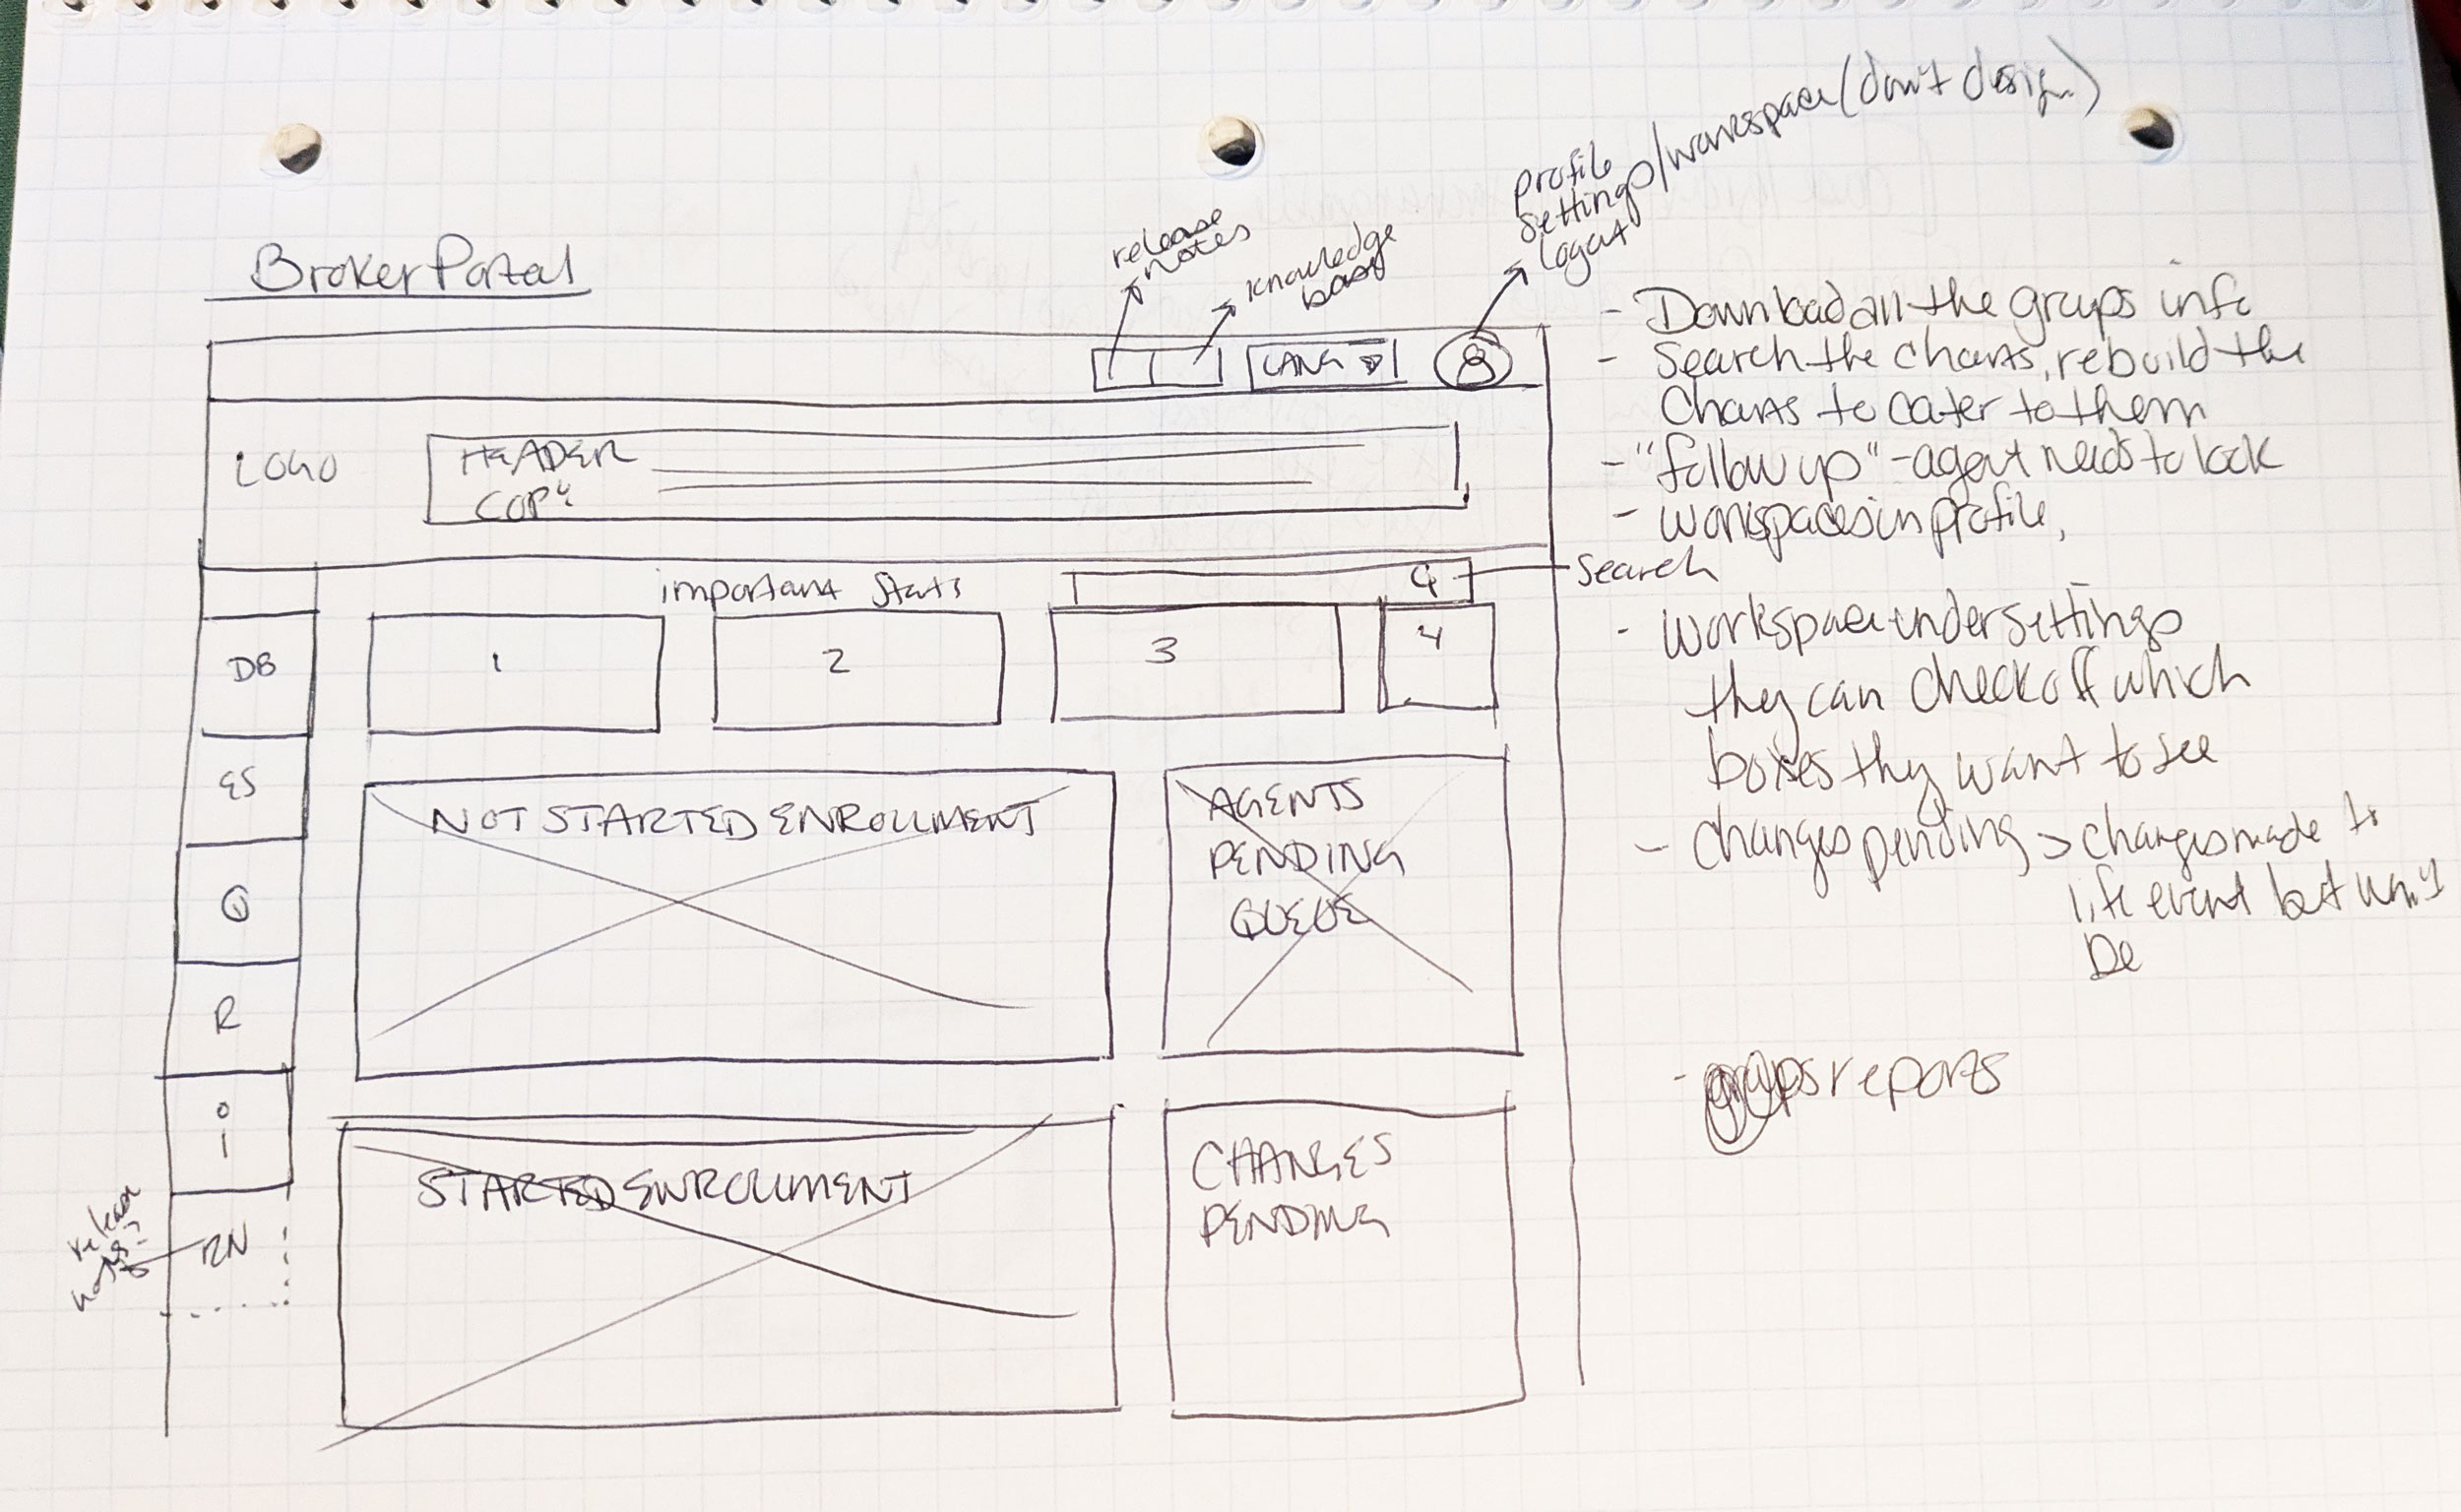 Broker Portal
release
notes
knowledge
base
profile
settings/workspace (don't design)
logout
LANG
LOGO
HEADER
COPY
important stats
Search
DB
1
2
3
4
ES
Q
R
i
RN
release
notes?
NOT STARTED ENROLLMENT
AGENTS
PENDING
QUEUE
STARTED ENROLLMENT
CHANGES
PENDING
- Download all the groups info
- Search the charts, rebuild the
charts to cater to them
- "follow up" - agent needs to look
- workspaces in profile,
- workspace under settings
they can check off which
boxes they want to see
- changes pending > changes made to
life event but won't
be
- groups reports